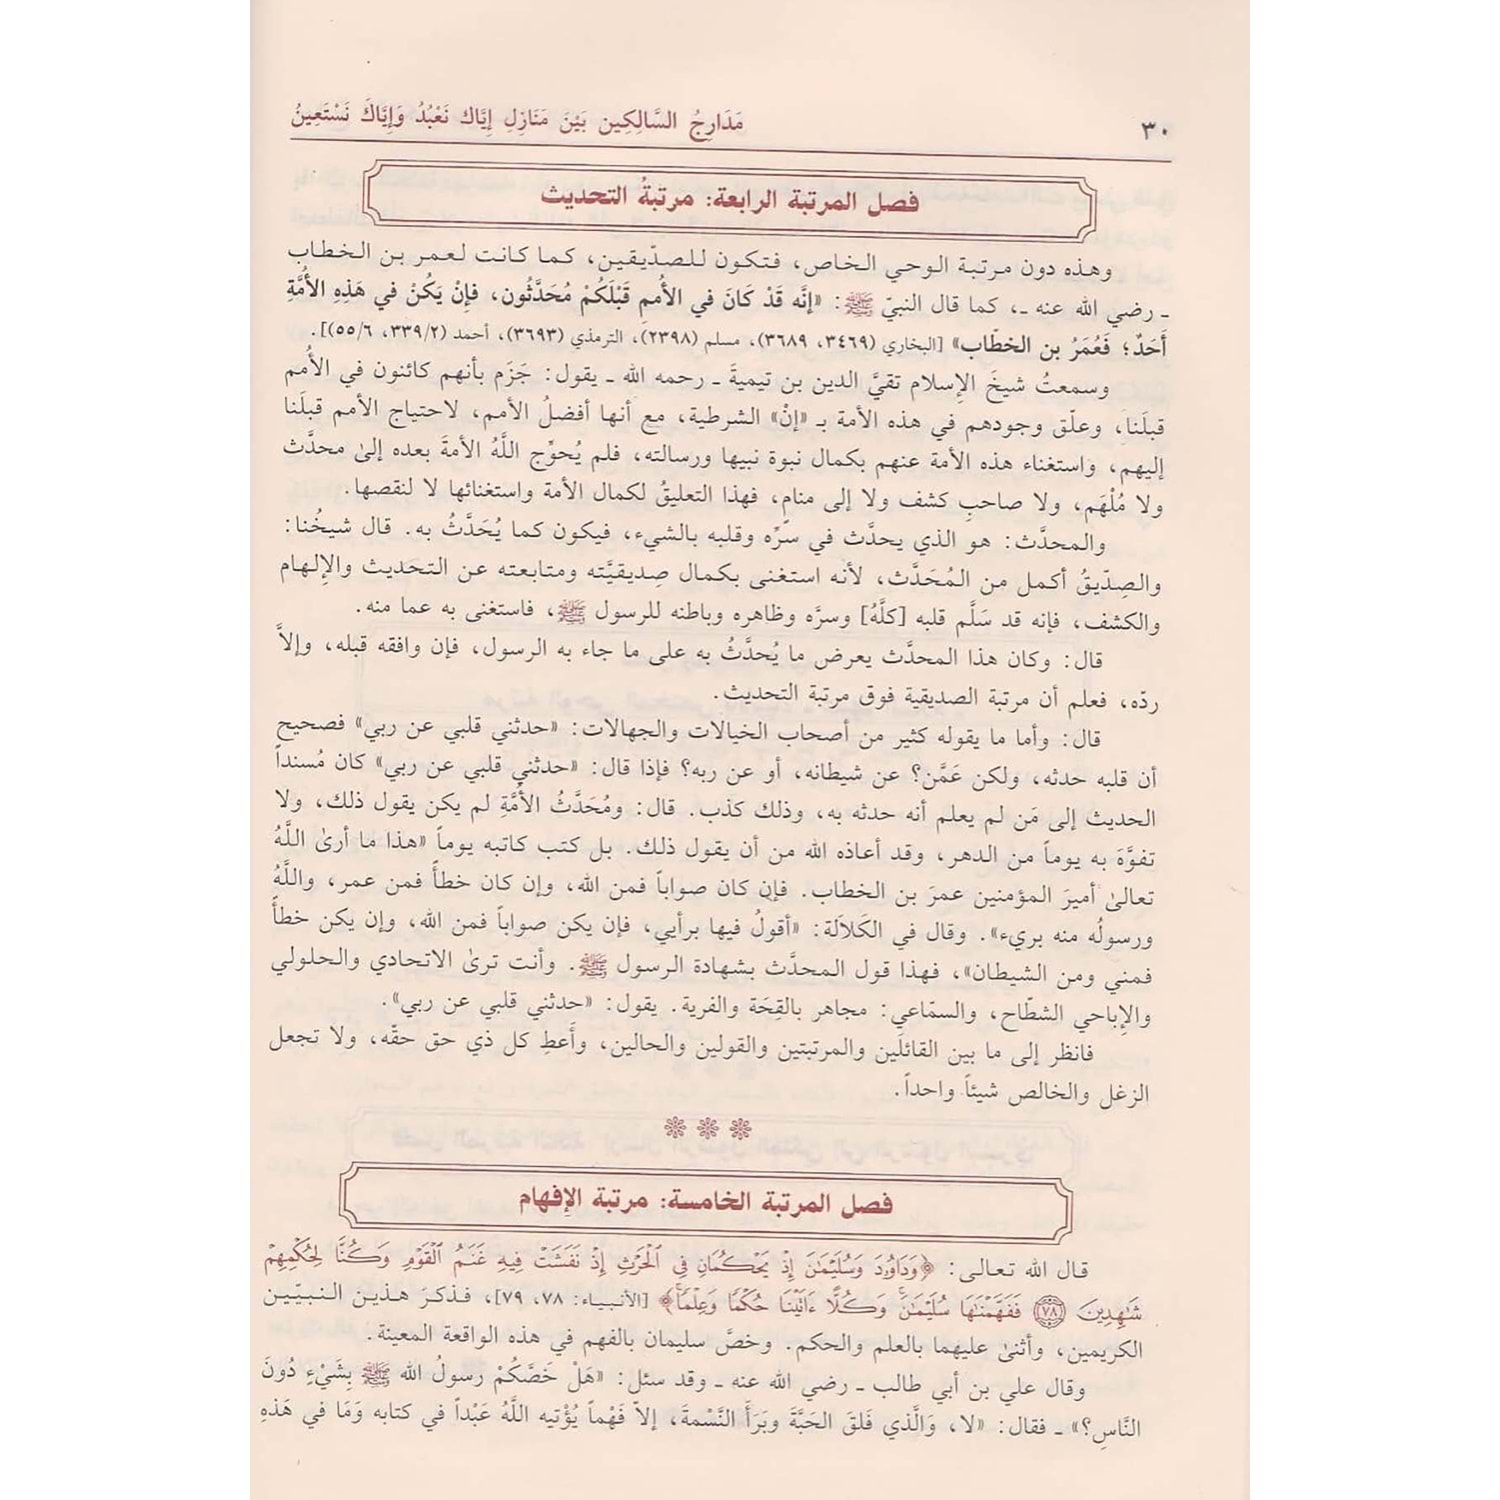 ٣٠
مَدَارِجُ السَّالِكِين بَيْنَ مَنَازِلِ إيَّاك نَعْبُدُ وَإيَّاكَ نَسْتَعِينُ
فصل المرتبة الرابعة: مرتبةُ التحديث
وهذه دون مرتبة الوحي الخاص، فتكون للصدّيقين، كما كانت لعمر بن الخطاب
ـ رضي الله عنه ـ، كما قال النبيّ ﷺ: «إنَّه قَدْ كَانَ في الأُممِ قَبْلَكُمْ مُحَدَّثُون، فإنْ يَكُنْ في هَذِهِ الأُمَّةِ
أَحَدٌ؛ فَعُمَرُ بن الخطّاب» [البخاري (٣٤٦٩، ٣٦٨٩)، مسلم (٢٣٩٨)، الترمذي (٣٦٩٣)، أحمد (٣٣٩/٢، ٥٥/٦)].
وسمعتُ شيخَ الإسلام تقيَّ الدين بن تيميةَ ـ رحمه الله ـ يقول: جَزَم بأنهم كائنون في الأُمم
قبلَنا، وعلّق وجودهم في هذه الأمة بـ «إنْ» الشرطية، مع أنها أفضلُ الأمم، لاحتياج الأمم قبلَنا
إليهم، واستغناء هذه الأمة عنهم بكمال نبوة نبيها ورسالته، فلم يُحوِّج اللَّهُ الأمةَ بعده إلىٰ محدَّث
ولا مُلْهَم، ولا صاحبِ كشف ولا إلى منامٍ، فهذا التعليقُ لكمال الأمة واستغنائها لا لنقصها.
والمحدَّث: هو الذي يحدَّث في سرِّه وقلبه بالشيء، فيكون كما يُحَدَّثُ به. قال شيخُنا:
والصِدّيقُ أكمل من المُحَدَّث، لأنه استغنى بكمال صِديقيَّته ومتابعته عن التحديث والإلهام
والكشف، فإنه قد سَلَّم قلبه [كلَّهُ] وسرَّه وظاهره وباطنه للرسول ﷺ، فاستغنى به عما منه.
قال: وكان هذا المحدَّث يعرض ما يُحدَّثُ به على ما جاء به الرسول، فإن وافقه قبله، وإلاَّ
ردّه، فعلم أن مرتبة الصديقية فوق مرتبة التحديث.
قال: وأما ما يقوله كثير من أصحاب الخيالات والجهالات: «حدثني قلبي عن ربي» فصحيح
أن قلبه حدثه، ولكن عَمَّن؟ عن شيطانه، أو عن ربه؟ فإذا قال: «حدثني قلبي عن ربي» كان مُسنداً
الحديث إلى مَن لم يعلم أنه حدثه به، وذلك كذب. قال: ومُحَدَّثُ الأُمَّةِ لم يكن يقول ذلك، ولا
تفوَّهَ به يوماً من الدهر، وقد أعاذه الله من أن يقول ذلك. بل كتب كاتبه يوماً «هذا ما أرىٰ اللَّهُ
تعالىٰ أميرَ المؤمنين عمرَ بن الخطاب. فإن كان صواباً فمن الله، وإن كان خطأً فمن عمر، واللَّهُ
ورسولُه منه بريء». وقال في الكَلاَلة: «أقولُ فيها برأيي، فإن يكن صواباً فمن الله، وإن يكن خطأً
فمني ومن الشيطان»، فهذا قول المحدَّث بشهادة الرسول ﷺ. وأنت ترىٰ الاتحادي والحلولي
والإباحي الشطّاح، والسمّاعي: مجاهر بالقِحَة والفرية. يقول: «حدثني قلبي عن ربي».
فانظر إلى ما بين القائلَين والمرتبتين والقولين والحالين، وأَعطِ كل ذي حق حقّه، ولا تجعل
الزغل والخالص شيئاً واحداً.
فصل المرتبة الخامسة: مرتبة الإفهام
قال الله تعالى: ﴿وَدَاوُۥدَ وَسُلَيْمَٰنَ إِذْ يَحْكُمَانِ فِى ٱلْحَرْثِ إِذْ نَفَشَتْ فِيهِ غَنَمُ ٱلْقَوْمِ وَكُنَّا لِحُكْمِهِمْ
شَٰهِدِينَ ۝٧٨ فَفَهَّمْنَٰهَا سُلَيْمَٰنَۚ وَكُلًّا ءَاتَيْنَا حُكْمًا وَعِلْمًاۚ﴾ [الأنبياء: ٧٨، ٧٩]، فذكرَ هذين النبيّين
الكريمين، وأثنىٰ عليهما بالعلم والحكم. وخصَّ سليمان بالفهم في هذه الواقعة المعينة.
وقال علي بن أبي طالب ـ رضي الله عنه ـ وقد سئل: «هَلْ خَصَّكُمْ رسولُ الله ﷺ بِشَيْءٍ دُونَ
النَّاسِ؟» ـ فقال: «لا، وَالَّذي فَلقَ الحَبَّةَ وبَرَأَ النَّسْمةَ، إلاّ فَهْماً يُؤْتيه اللَّهُ عَبْداً في كتابه وَمَا في هَذهِ